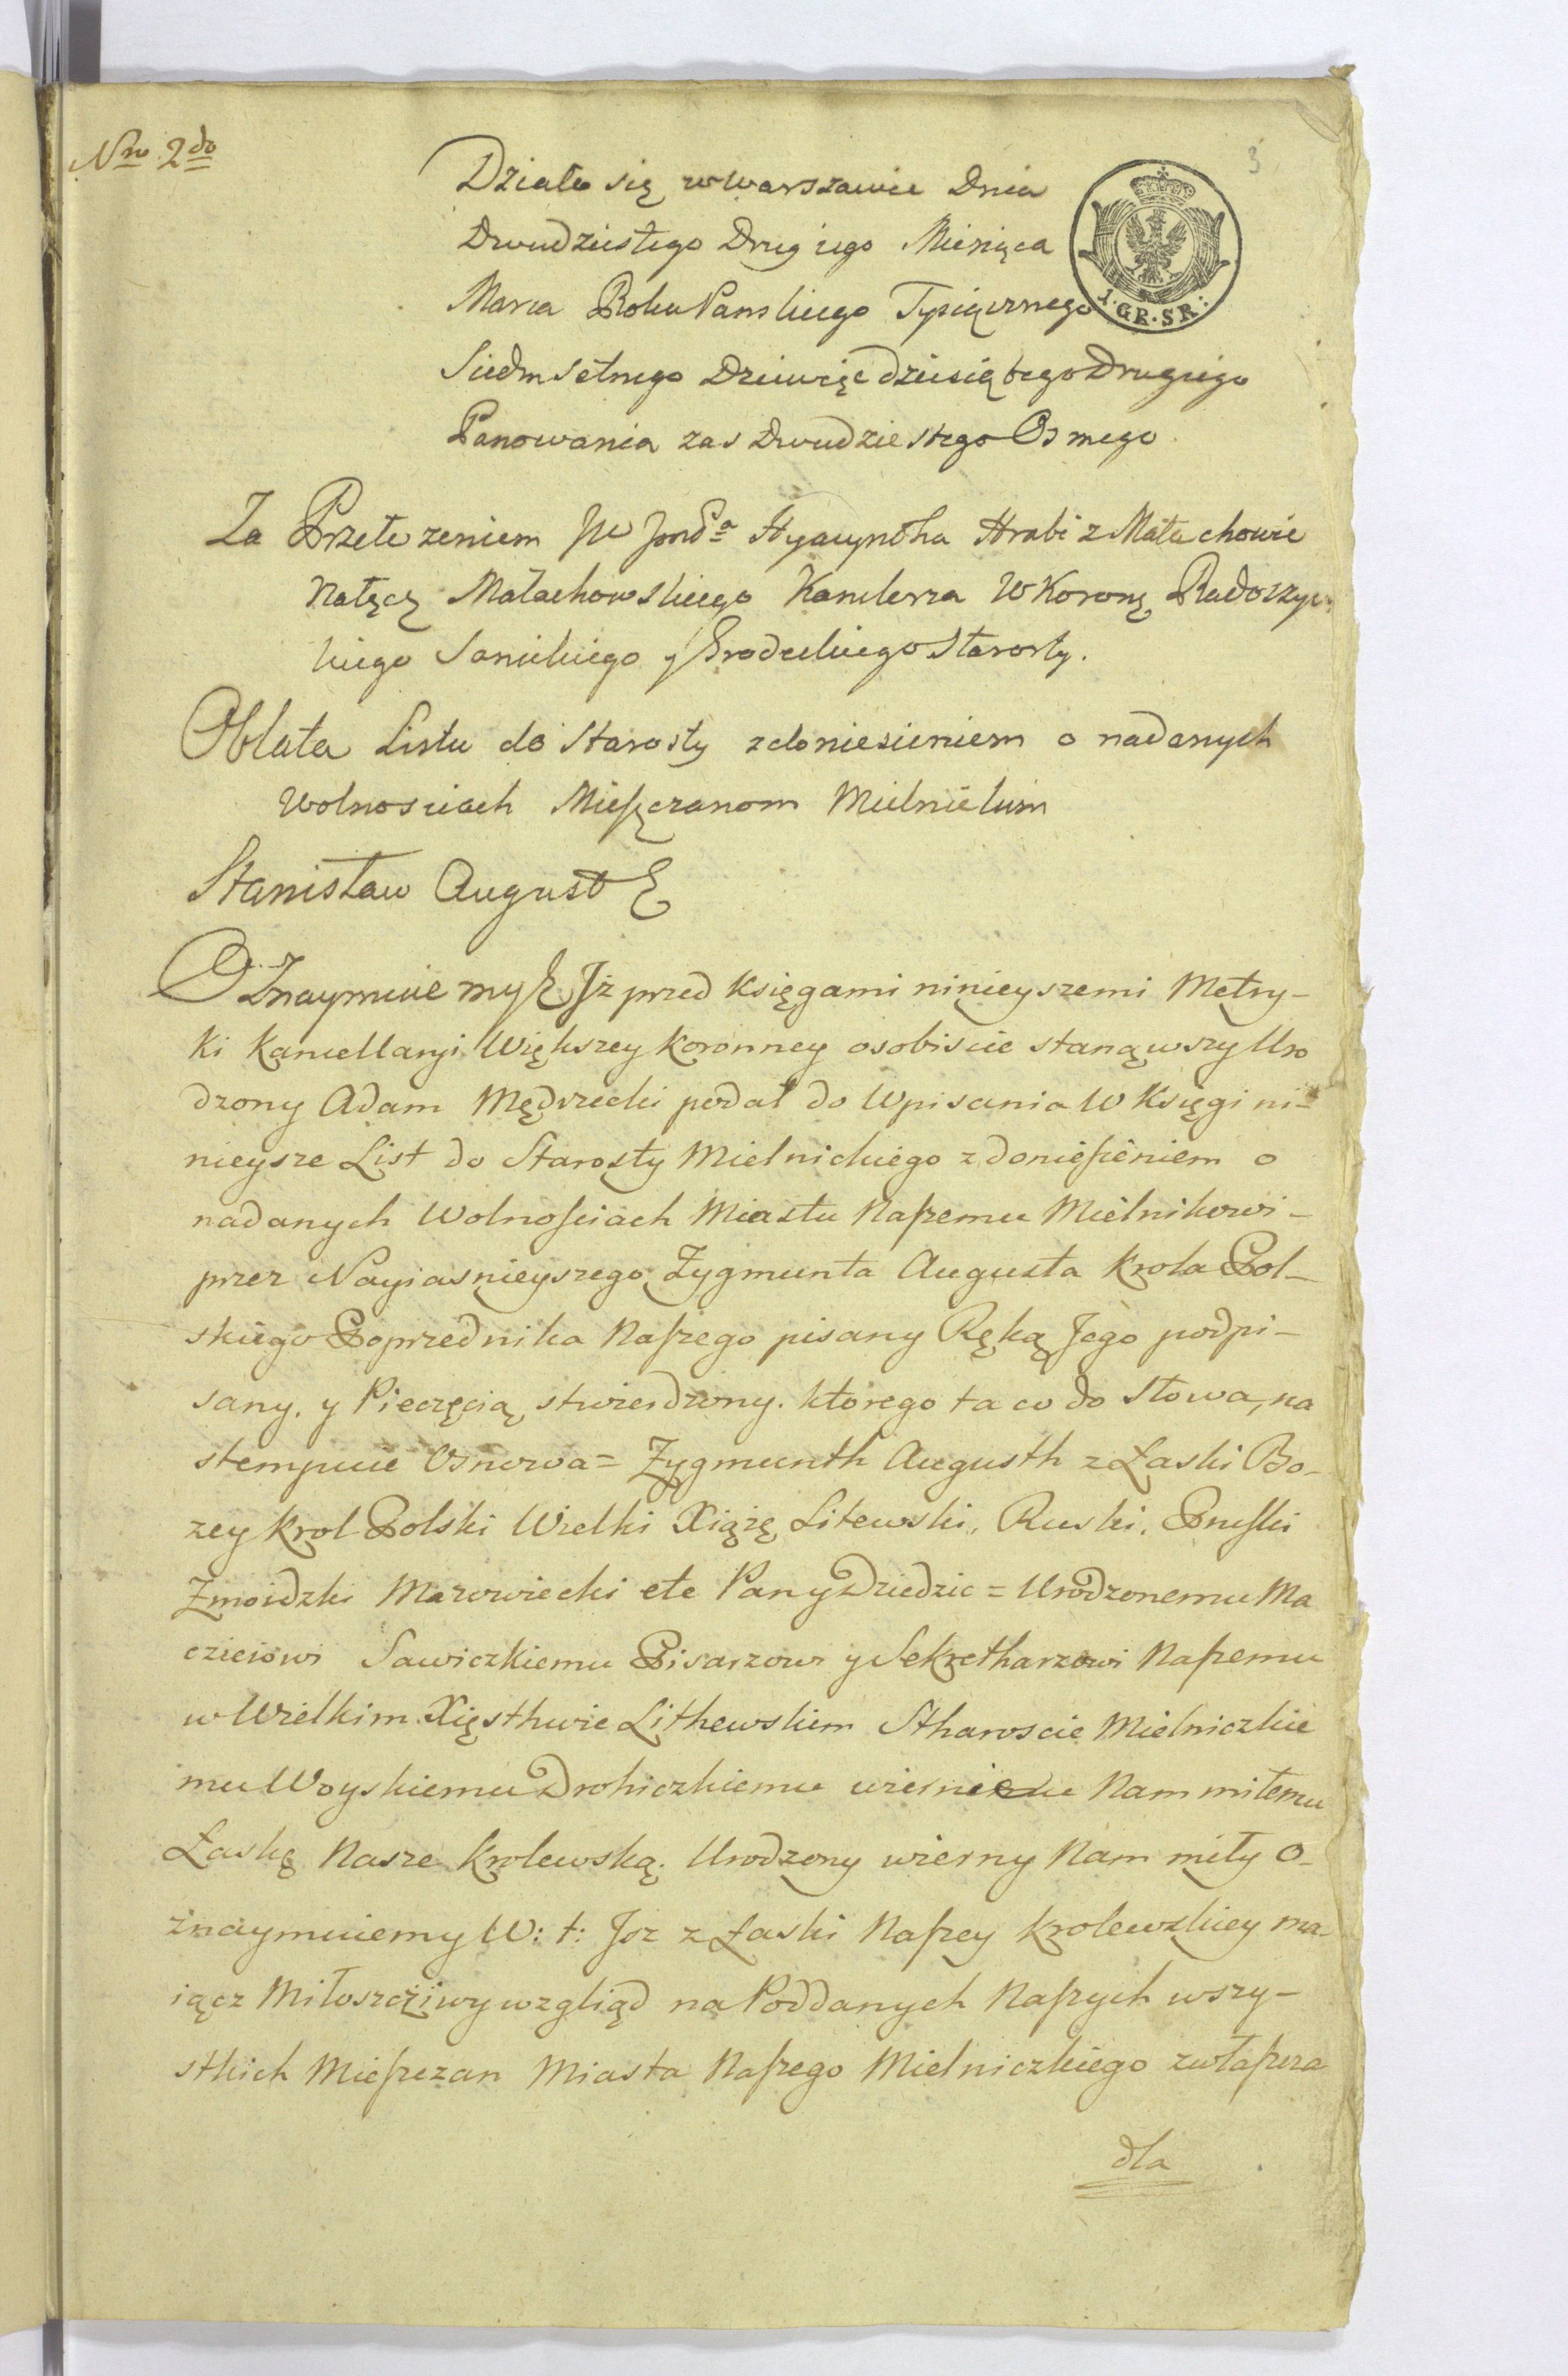 Nro 2do
3
Działo się w Warszawie Dnia
Dwudziestego Drugiego Miesiąca
1. GR. SR:
Marca Roku Panskiego Tysiącznego
Siedmsetnego Dziewięćdziesiątego Drugiego
Panowania zas Dwudziestego Osmego
Za Przełożeniem JW Hyacyntha Hrabi z Małachowic
Nałęcz Małachowskiego Kanclerza W Korony Radoszyc
kiego Sanickiego y Grodeckiego Starosty.
Oblata Listu do Starosty z doniesieniem o nadanych
Wolnosciach Mieszczanom Mielnickim
Stanisław August &
Oznaymuiemy & Jż przed Księgami ninieyszemi Metry-
ki Kancellaryi Większey Koronney osobiscie stanąwszy Uro
dzony Adam Mędrzecki podał do Wpisania W Księgi ni-
nieysze List do Starosty Mielnickiego z doniesieniem o
nadanych Wolnosciach Miastu Naszemu Mielnikowi -
przez Nayiasnieyszego Zygmunta Augusta Krola Pol-
skiego Poprzednika Naszego pisany Ręką Jego podpi-
sany. y Pieczęcią stwierdzony. ktorego ta co do słowa, na
stempuie Osnowa = Zygmunth Augusth z Łaski Bo-
zey Krol Polski Wielki Xiąże Litewski, Ruski, Pruski
Zmoidzki Mazowiecki etc Pan y Dziedzic = Urodzonemu Ma
czieiowi Sawiczkiemu Pisarzowi y Sekretharzowi Naszemu
w Wielkim Xięsthwie Lithewskiem Stharoscie Mielniczkie
mu Woyskiemu Drohiczkiemu wiernie Nam miłemu
Łaskę Nasze Krolewską. Urodzony wierny Nam miły O-
znaymuiemy W: t: Jsz z Łaski Naszey Krolewskiey ma-
iącz Miłoszcziwy wzgliąd na Poddanych Naszych wszy-
stkich Mieszczan Miasta Naszego Mielniczkiego zwłaszcza
dla